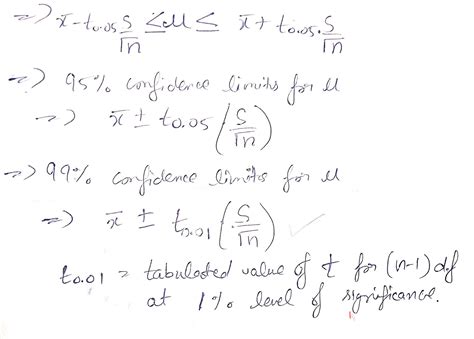 => x̄ - t0.05 S/√n ≤ μ ≤ x̄ + t0.05. S/√n
=> 95% confidence limits for μ
=> x̄ ± t0.05 (S/√n)
=> 99% confidence limits for μ
=> x̄ ± t0.01 (S/√n)
t0.01 = tabulated value of t for (n-1) d.f
at 1% level of significance.